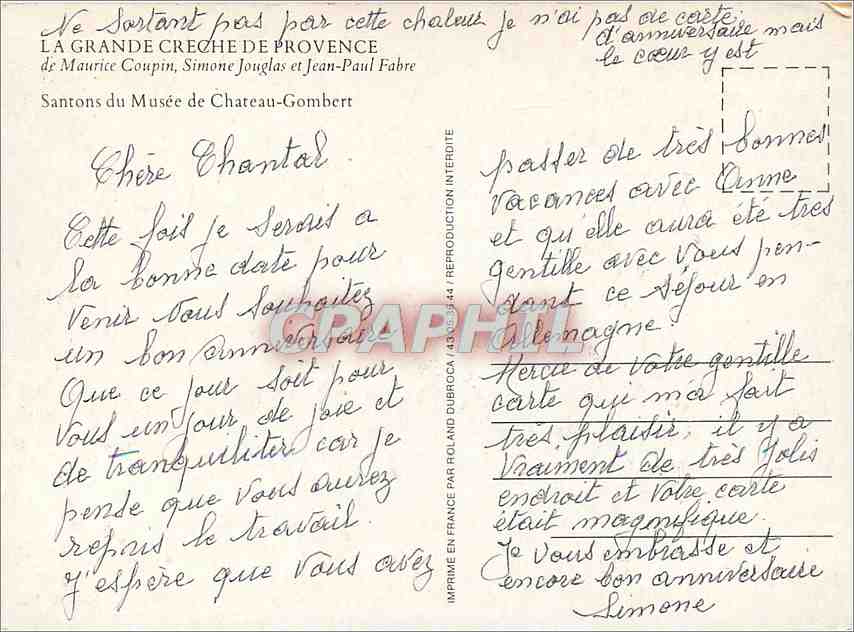 Ne Sortant pas par cette chaleur je n'ai pas de carte
d'anniversaire mais
le cœur y est
LA GRANDE CRECHE DE PROVENCE
de Maurice Coupin, Simone Jouglas et Jean-Paul Fabre
Santons du Musée de Chateau-Gombert
Chère Chantal
Cette fois je serais a
la bonne date pour
venir vous souhaitez
un bon anniversaire
Que ce jour soit pour
vous un jour de joie et
de tranquiliter car je
pense que vous aurez
repris le travail.
J'espère que vous avez
IMPRIMÉ EN FRANCE PAR ROLAND DUBROCA / 43.05.36.44 / REPRODUCTION INTERDITE
passer de très bonnes
vacances avec Anne
et qu'elle aura été très
gentille avec vous pen-
dant ce séjour en
Allemagne.
Mercie de votre gentille
carte qui m'a fait
très plaisir, il y a
vraiment de très jolis
endroit et votre carte
était magnifique.
Je vous embrasse et
encore bon anniversaire
Simone
CPAPHIL